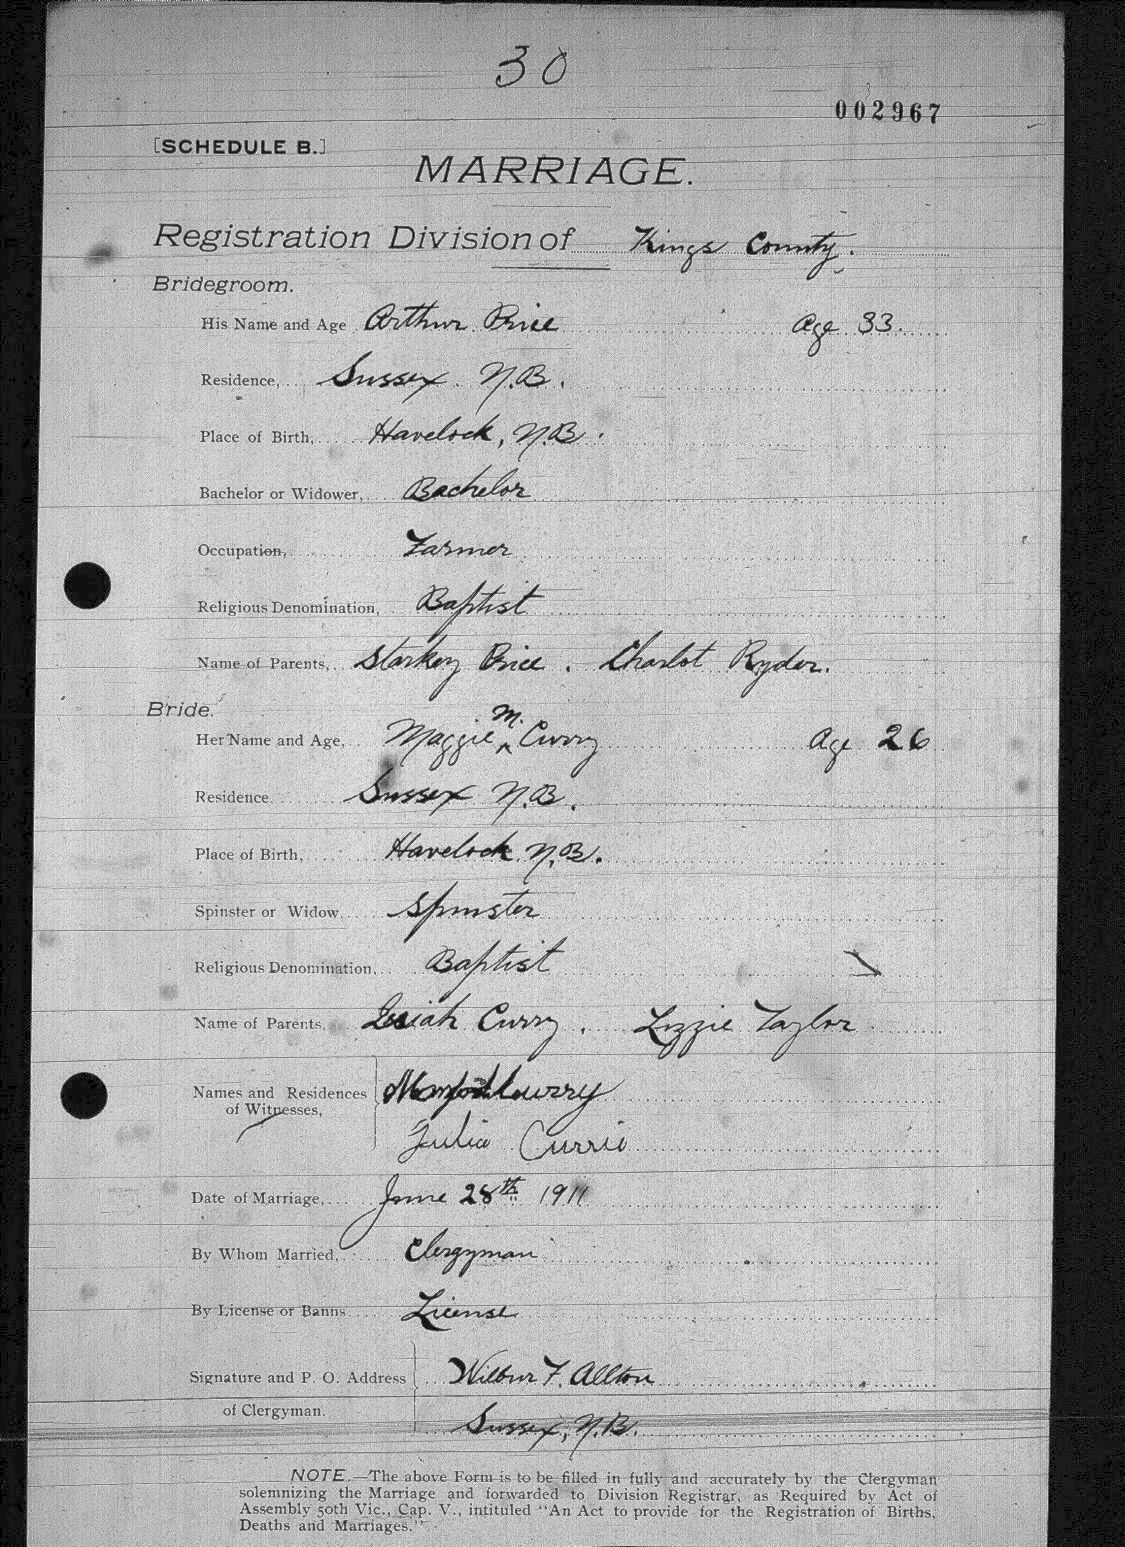 30
002967
[SCHEDULE B.]
MARRIAGE.
Registration Division of Kings County.
Bridegroom.
His Name and Age Arthur Price Age 33.
Residence, Sussex. N.B.
Place of Birth, Havelock, N.B.
Bachelor or Widower, Bachelor
Occupation, Farmer
Religious Denomination, Baptist
Name of Parents, Starkey Price. Charlot Ryder.
Bride.
Her Name and Age, Maggie M. Curry Age 26
Residence Sussex N.B.
Place of Birth, Havelock N.B.
Spinster or Widow Spinster
Religious Denomination, Baptist
Name of Parents, Curry. Lizzie Taylor
Names and Residences of Witnesses, Curry
Julia Currie
Date of Marriage, June 28th 1911
By Whom Married, Clergyman
By License or Banns License
Signature and P. O. Address Wilbur F. Allton
of Clergyman. Sussex, N.B.
NOTE.—The above Form is to be filled in fully and accurately by the Clergyman
solemnizing the Marriage and forwarded to Division Registrar, as Required by Act of
Assembly 50th Vic., Cap. V., intituled "An Act to provide for the Registration of Births,
Deaths and Marriages."